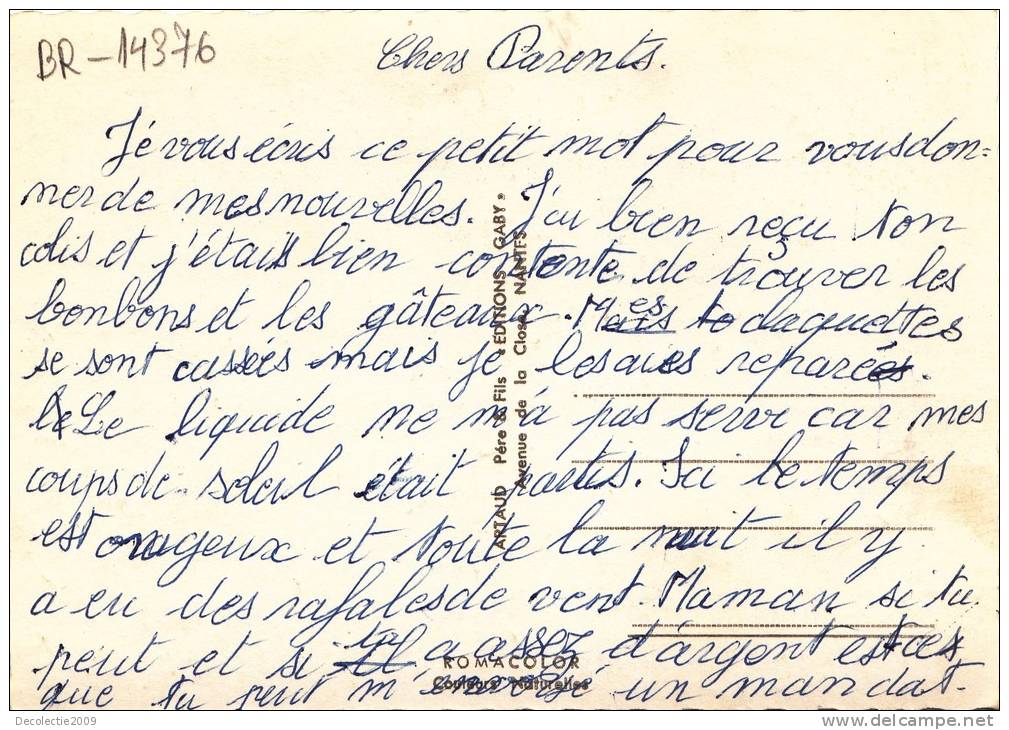 BR-14376
Chers Parents.
Jé vous écris ce petit mot pour vous don=
ner de mes nouvelles. J'ai bien reçu ton
colis et j'étais bien contente de trouver les
bonbons et les gâteaux. Mes claquettes
se sont cassées mais je les aies reparées.
Le liquide ne m'a pas servi car mes
coups de soleil était partis. Ici le temps
est orageux et toute la nuit il y
a eu des rafales de vent. Maman si tu
peut et si tu a assez d'argent est ces
que tu peut m'envoyé un mandat.
ARTAUD Père & Fils "EDITIONS GABY"
Avenue de la Close, NANTES
ROMACOLOR
Couleurs Naturelles
Decolectie2009
www.delcampe.net